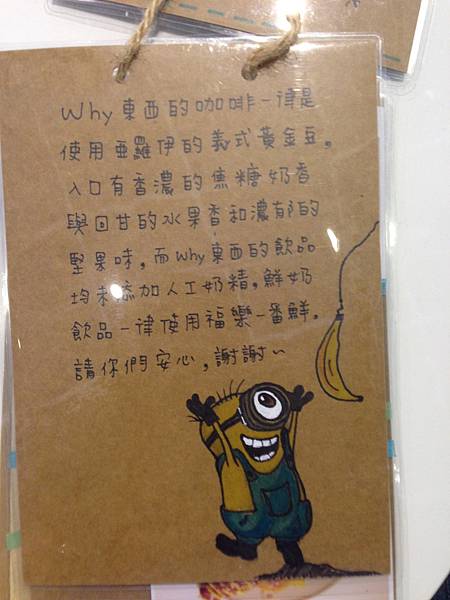 Why東西的咖啡一律是
使用亞羅伊的義式黃金豆。
入口有香濃的焦糖奶香
與回甘的水果香和濃郁的
堅果味，而why東西的飲品
均未添加人工奶精，鮮奶
飲品一律使用福樂一番鮮。
請你們安心，謝謝～